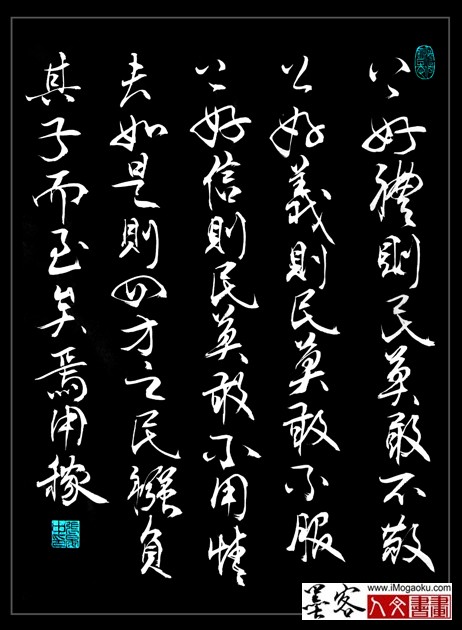 上好禮則民莫敢不敬
上好義則民莫敢不服
上好信則民莫敢不用情
夫如是則四方之民襁負
其子而至矣焉用稼
www.iMogaoku.com
墨客
人文書畫